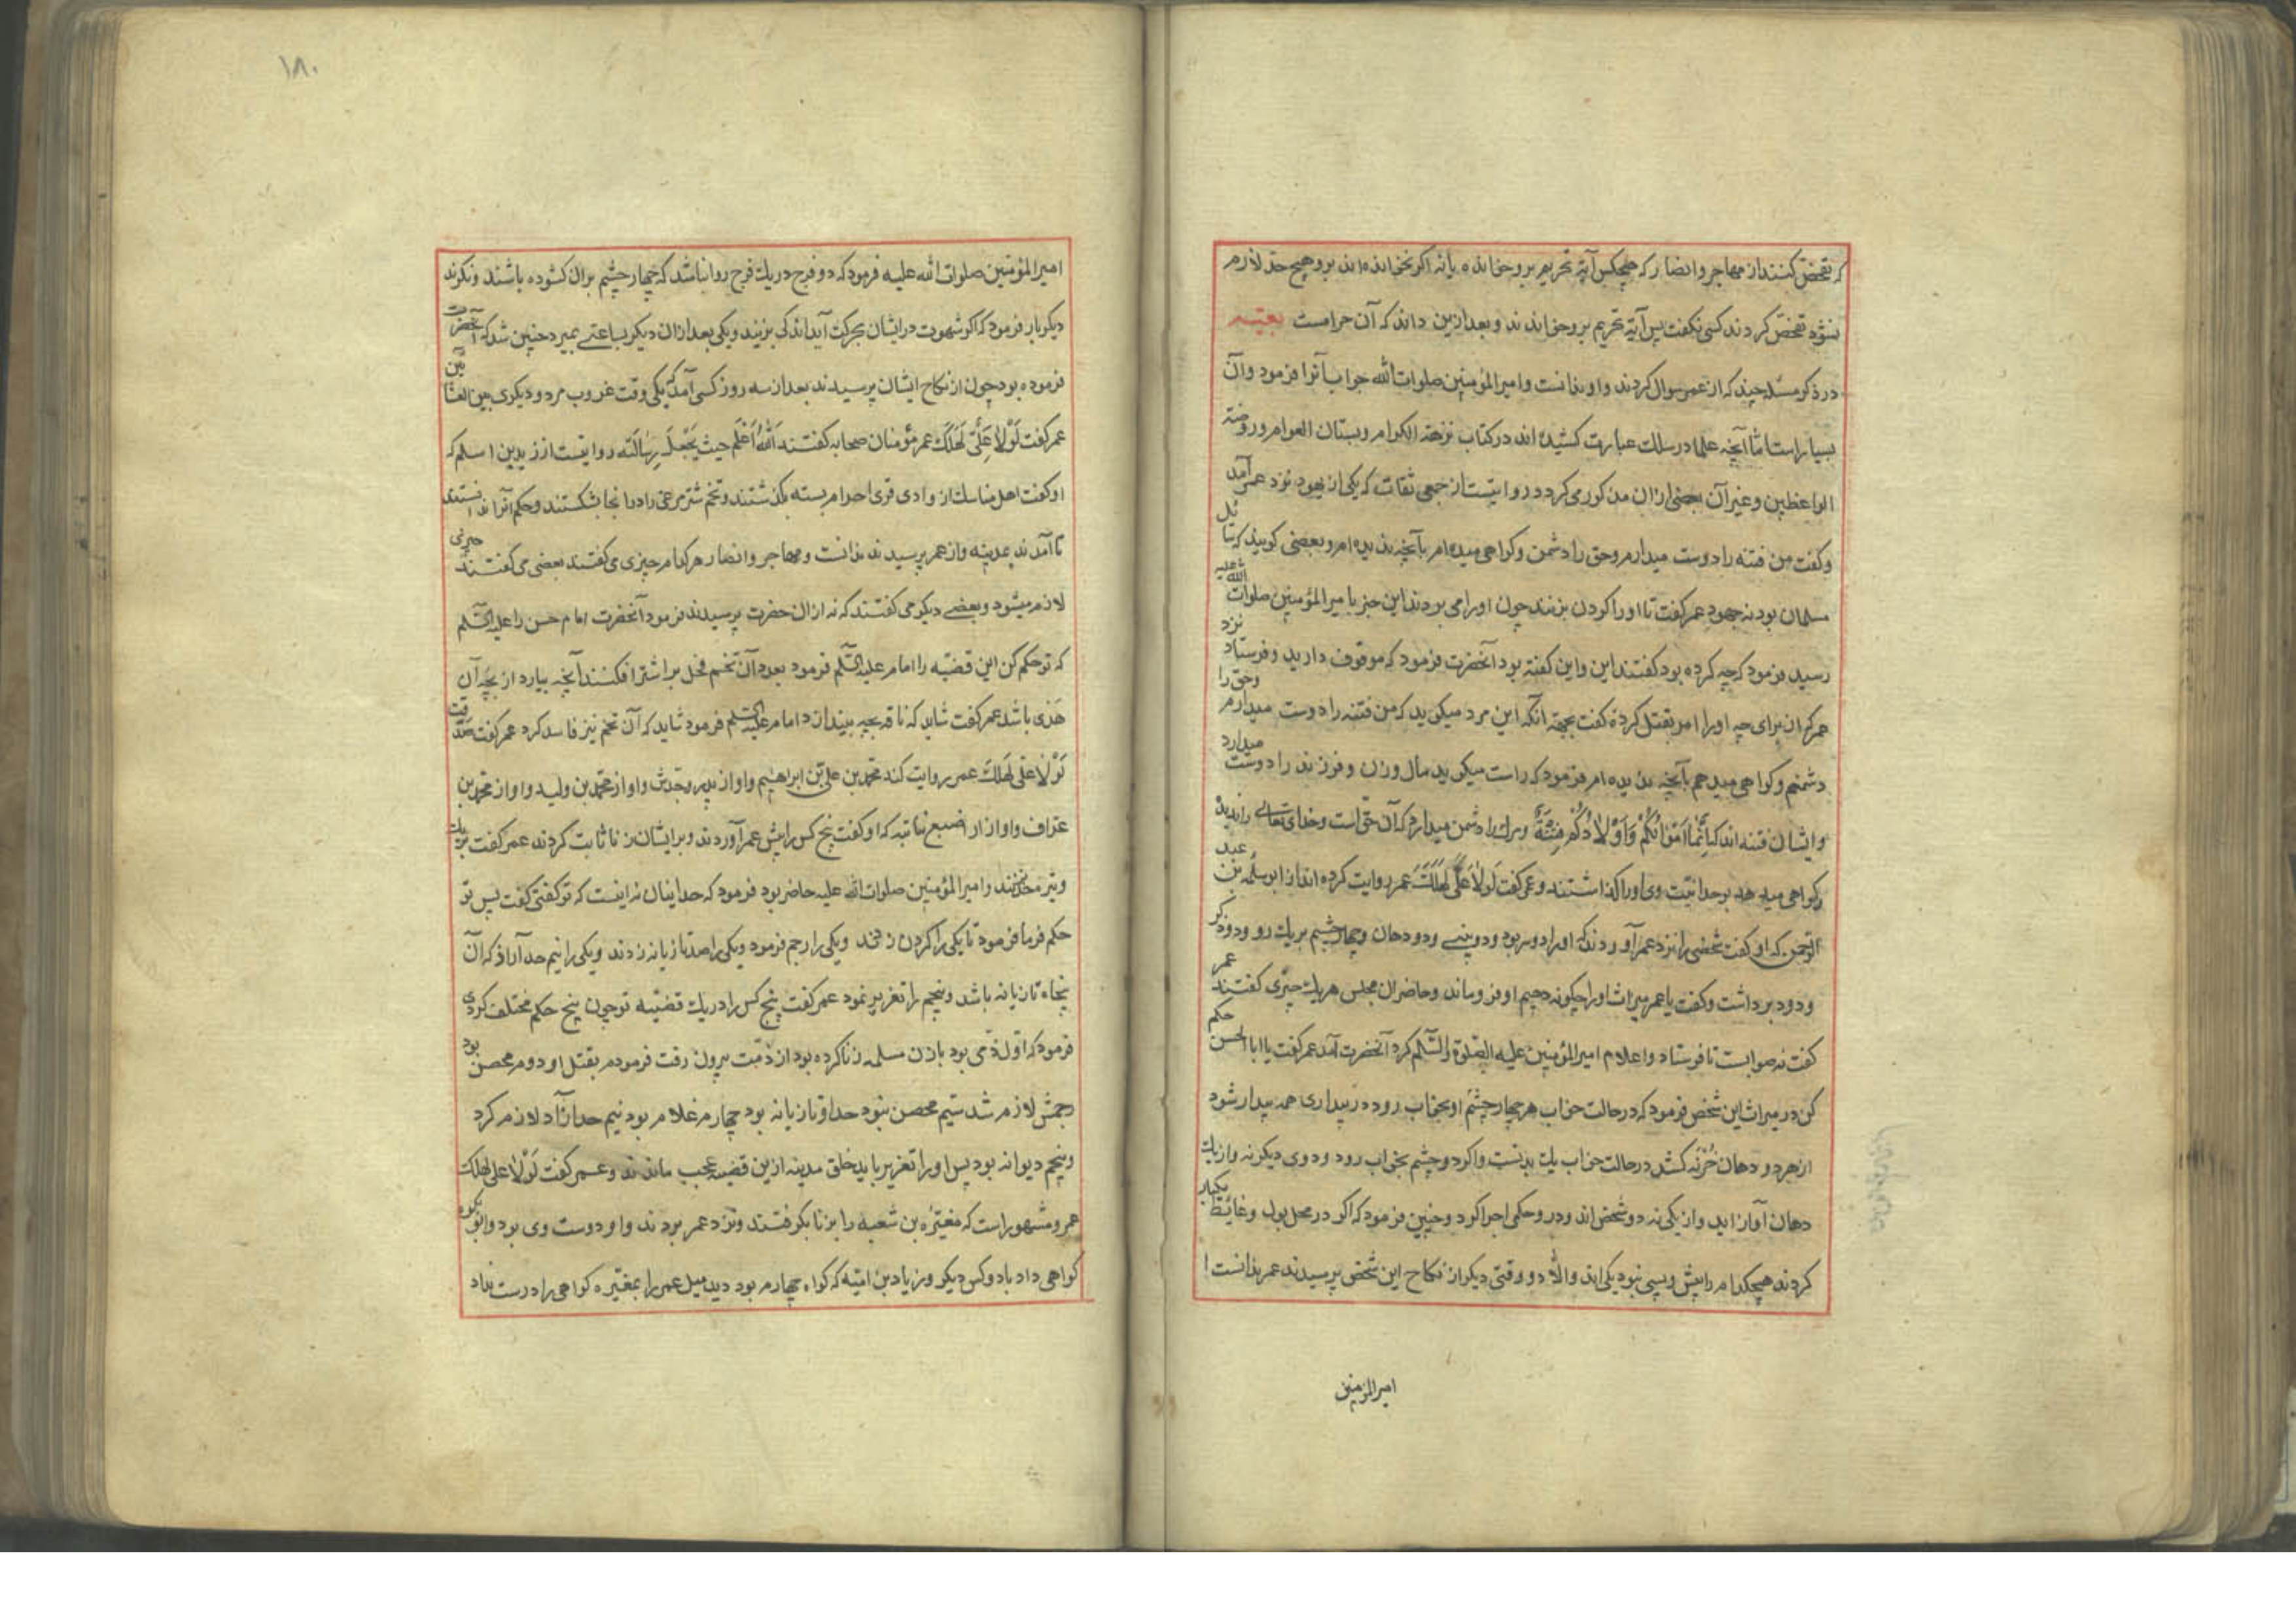 که تفحّص کنند از مهاجر و انصار که هیچکس آیة تحریم برو خوانده یا نه اکر نخوانده‌اند برو هیچ حد لازم
نشود تفحّص کردند کسی نکفت پس آیة تحریم برو خواندند و بعد ازین داند که آن حرامست
در ذکر مسئله چند که از عمر سوال کردند و او ندانست و امیرالمؤمنین صلوات الله جواب آنرا فرمود و آن
بسیار است امّا آنچه علما در سلک عبارت کشیده‌اند در کتاب نزهة الکرام و بستان العوام و روضة
الواعظین و غیر آن بعضی از آن مذکور می کردد روایتست از جمعی ثقات که یکی از یهود نزد عمر آمد
و کفت من فتنه را دوست میدارم و حق را دشمن و کواهی میدهم بآنچه ندیده‌ام و بعضی کویند که سائل
مسلمان بود نه جهود عمر کفت تا او را کردن بزنند چون او را می بردند این خبر بامیرالمؤمنین صلوات الله علیه
رسید فرمود که چه کرده بود کفتند این و این کفته بود آنحضرت فرمود که موقوف دارید و فرستاد نزد
عمر که از برای چه او را امر بقتل کردهٔ کفت بجهة آنکه این مرد میکوید که من فتنه را دوست میدارم و حق را
دشمنم و کواهی میدهم بآنچه ندیده‌ام فرمود که راست میکوید مال و زن و فرزند را دوست میدارد
و ایشان فتنه‌اند که اِنَّمٰا اَمْوٰالُکُمْ وَاَوْلٰادُکُمْ فِتْنَةٌ و مرک را دشمن میدارد که آن حق است و خدای تعالی را ندیده
و کواهی میدهد بوحدانیّت وی او را کذاشتند و عمر کفت لَوْلٰا عَلِیٌّ لَهَلَکَ عُمر روایت کرده‌اند از ابو سلمه بن عبد
الرحمن که او کفت شخصی را نزد عمر آوردند که او را دو سر بود و دو بینی و دو دهان و چهار چشم بر یک رو و دو ذکر
و دو دبر داشت و کفت یا عمر میراث او را چکونه دهیم او فرو ماند و حاضران مجلس هر یک چیزی کفتند عمر
کفت نه صوابست تا فرستاد و اعلام امیرالمؤمنین علیه الصّلوة والسّلام کرد آنحضرت آمد عمر کفت یا ابا الحسن حکم
کن در میراث این شخص فرمود که در حالت خواب هر چهار چشم او بخواب رود و در بیداری همه بیدار شود
از هر دو دهان خُرنه کشد در حالت خواب یک بدنست و اکر دو چشم بخواب رود و دوی دیکر نه و از یک
دهان آواز آید و از یکی نه دو شخص‌اند و در و حکمی اجرا کرد و چنین فرمود که اکر در محل بول و غائط یکبار
کردند هیچکدام را پیش و پسی نبود یکی‌اند و الّا دو وقتی دیکر از نکاح این شخص پرسیدند عمر ندانست
امیرالمؤمنین
۱۸۰
امیرالمؤمنین صلوات الله علیه فرمود که دو فرج در یک فرج روا نباشد که چهار چشم بر آن کشوده باشند و نکرند
دیکر بار فرمود که اکر شهوت در ایشان بحرکت آید اندکی بزیند و یکی بعد از آن دیکر بساعتی بمیرد چنین شد که آنحضرت
فرموده بود چون از نکاح ایشان پرسیدند بعد از سه روز کسی آمد که یکی وقت غروب مرد و دیکری بین
عمر کفت لَوْلٰا عَلِیٌّ لَهَلَکَ عمر مؤمنان صحابه کفتند اَللّٰهُ اَعْلَمُ حیث یَجْعَلُ رِسٰالَتَه روایتست از زید بن اسلم که
او کفت اهل مناسک از وادی قری احرام بسته بکذشتند و تخم شترمرغی را در آنجا بشکستند و حکم آنرا ندانستند
تا آمدند بمدینه و از عمر پرسیدند ندانست و مهاجر و انصار هر کدام چیزی می کفتند بعضی می کفتند چیزی
لازم میشود و بعضی دیکر می کفتند که نه از آن حضرت پرسیدند فرمود آنحضرت امام حسن را علیه السّلم
که تو حکم کن این قضیّه را امام علیه السّلم فرمود بعدد آن تخم فحل بر اشتر افکنند آنچه بیارد از بچهٔ آن
هَدی باشد عمر کفت شاید که ناقه بچه بیندازد امام علیه السّلم فرمود شاید که آن تخم نیز فاسد کرد عمر کفت صَدَقت
لَوْلٰا علی لَهَلَکَ عمر روایت کند محمّد بن علی بن ابراهیم و او از پدر و جدش و او از محمّد بن ولید و او از محمّد بن
و او از اصبغ نباته که او کفت پنج کس را پیش عمر آوردند و بر ایشان زنا ثابت کردند عمر کفت
حد زنند و امیرالمؤمنین صلوات الله علیه حاضر بود فرمود که حد اینان نه اینست که تو کفتی کفت پس تو
حکم فرما فرمود تا یکی را کردن زدند و یکی را رجم فرمود و یکی را صد تازیانه زدند و یکی را نیم حد آزاد که آن
پنجاه تازیانه باشد و پنجم را تعزیر نمود عمر کفت پنج کس را در یک قضیّه تو چون پنج حکم مختلف کردی
فرمود که اوّل ذمّی بود با زن مسلمه زنا کرده بود از ذمّت بیرون رفت فرمودم بقتل او دوم محصن بود
رجمش لازم شد سیّم محصن نبود حد او تازیانه بود چهارم غلام بود نیم حد آزاد لازم کرد
و پنجم دیوانه بود پس او را تعزیر باید خلق مدینه ازین قضیه عجب ماندند و عمر کفت لَوْلٰا علی لهلک
عمر و مشهور است که مغیره بن شعبه را بزنا بکرفتند و نزد عمر بردند و او دوست وی بود و ابوبکره
کواهی داد با دو کس دیکر و زیاد بن امیّه که کواه چهارم بود دید میل عمر را بمغیره کواهی را درست نداد